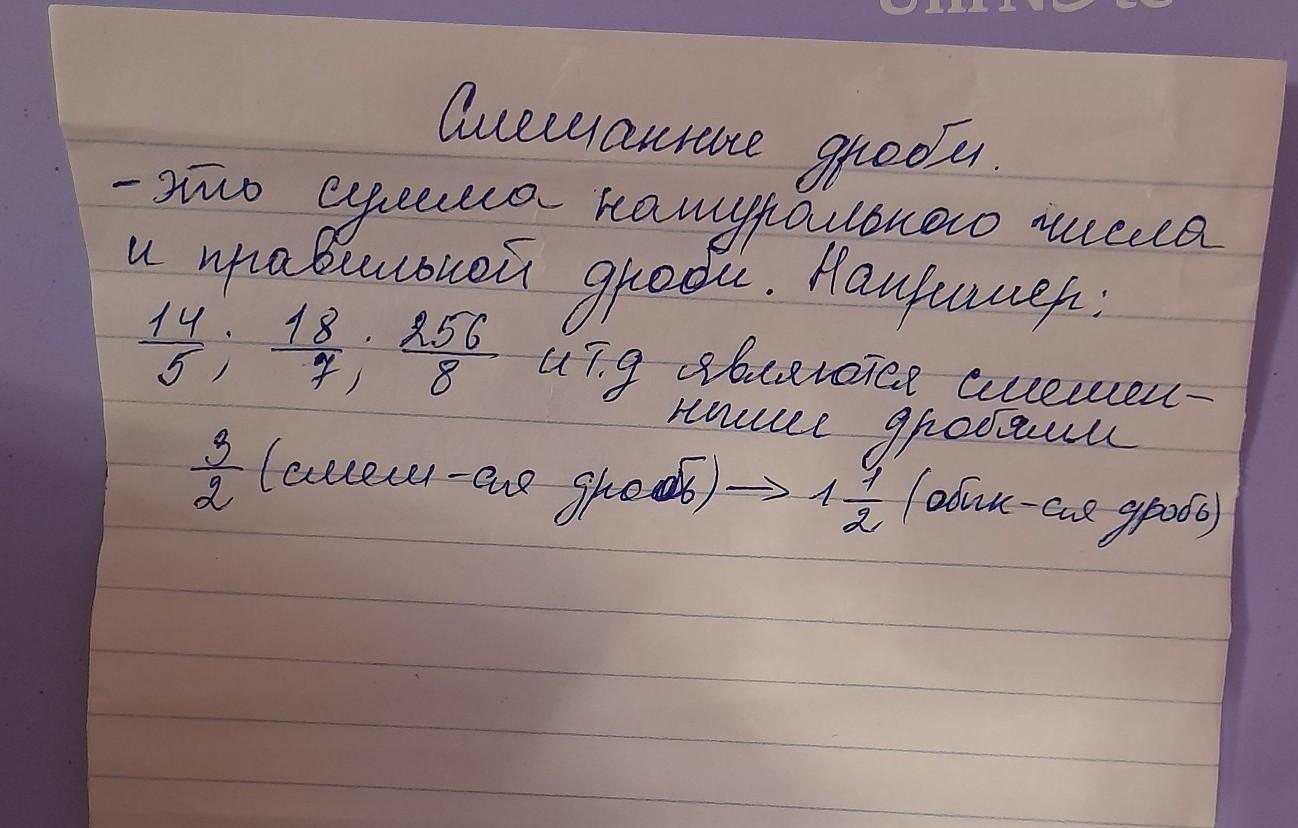 UniNote
Смешанные дроби.
- это сумма натурального числа
и правильной дроби. Например:
14/5; 18/7; 256/8 и т.д являются смешен-
ными дробями
3/2 (смеш-ая дробь) → 1 1/2 (обык-ая дробь)